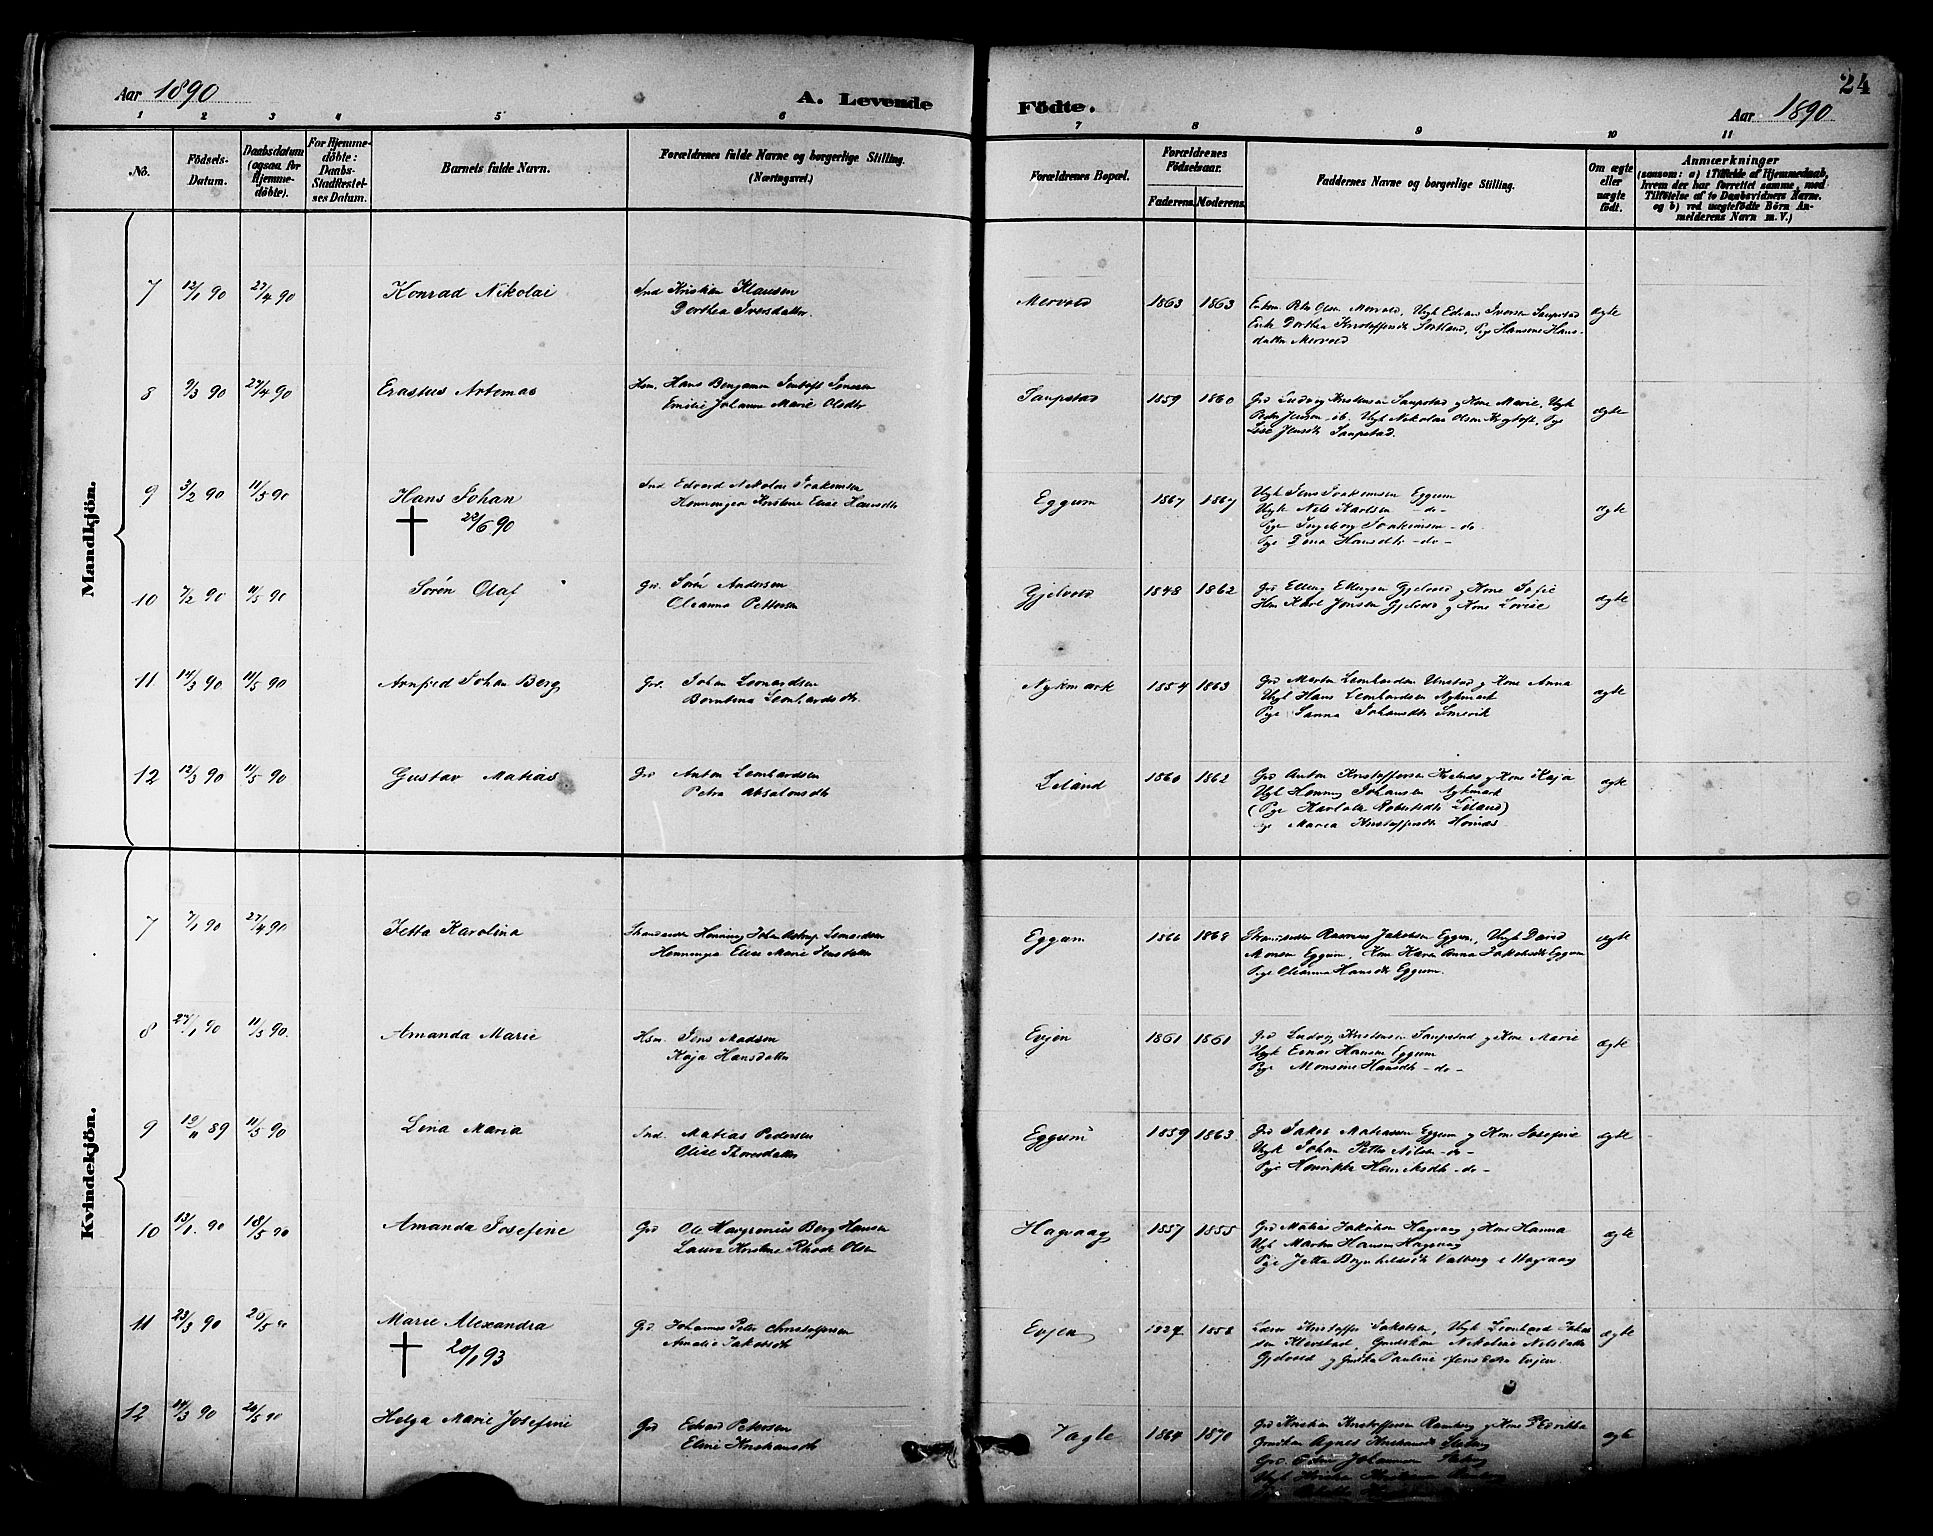 Aar 1890
A. Levende
Födte.
Aar 1890
24
1 2 3 4 5 6 7 8 9 10 11
No.
Födsels-
Datum.
Daabsdatum
(ogsaa for
Hjemme-
döbte).
For Hjemme-
döbte:
Daabs-
Stadfæstel-
ses Datum.
Barnets fulde Navn.
Forældrenes fulde Navne og borgerlige Stilling.
(Næringsvei.)
Forældrenes Bopæl.
Forældrenes
Födselsaar.
Faderens. Moderens.
Faddernes Navne og borgerlige Stilling.
Om ægte
eller
uægte
födt.
Anmærkninger
(saasom: a) i Tilfælde af Hjemmedaab,
hvem der har forrettet samme, med
Tilföielse af to Daabsvidners Navne,
og b) ved uægtefödte Börn An-
melderens Navn m. V.)
Mandkjön.
7 12/1 90 27/4 90 Konrad Nikolai
Ind Kristian Klausen
Dorthea Iversdatter.
Mervold 1863 1863
Enkem. Peter Olsen Mervold, Ungk Edvard Iversen Saupstad
Enke Dorthea Kristoffersdt Sortland, Pige Hansine Hans-
datter Mervold
ægte
8 9/3 90 27/4 90 Erastus Artemas
Hsm. Hans Benjamin Jentoft Jensen
Emilie Johanna Marie Olsdtr
Saupstad 1859 1860
Grd Ludvig Kristensen Saupstad og Kone Marie, Ungk
Peder Jensen ib. Ungk Nikolai Olsen, Pige
Lise Jensdt Saupstad.
ægte
9 3/2 90 11/5 90 Hans Johan
† 22/6 90
Ind Edvard Nikolai Joakimsen
Henningia Kirstine Elise Hansdtr
Eggum 1867 1867
Ungk Jens Joakimsen Eggum
Ungk Nils Karlsen -do-
Pige Ingeborg Joakimsen -do-
Pige Dona Hansdtr -do-
ægte
10 7/2 90 11/5 90 Sörön Olaf
Gr. Sören Andersen
Oleanna Pettersen
Gjelvold 1848 1862
Grd Elling Ellingsen Gjelvold og Kone Sofie
Hsm Karl Jonsen Gjelvold og Kone Lovise
ægte
11 14/3 90 11/5 90 Arnfred Johan Berg
Grd. Johan Leonardsen
Berntina Leonhardsdtr.
Nykmark 1854 1863
Grd Morten Leonhardsen Unstad og Kone Anna
Ungk Hans Leonhardsen Nykmark
Pige Sanna Johansdtr
ægte
12 12/3 90 11/5 90 Gustav Matias
Grd Anton Leonhardsen
Petra Absalonsdtr
Liland 1860 1862
Grd Anton Kristoffersen og Kone Kaja
Ungk Henning Johansen Nykmark
(Pige Robertsdtr Liland)
Pige Maria Kristoffersdtr
ægte
Kvindekjön.
7 7/1 90 27/4 90 Jetta Karolina
Strandsidder Henning Johan Astrup Leonardsen
Henningia Elise Marie Jensdatter
Eggum 1866 1868
Strandsidder Rasmus Jakobsen Eggum, Ungk David
Monsen Eggum, Kone Karen Anna Jakobsdt Eggum
Pige Oleanna Hansdtr Eggum.
ægte
8 27/1 90 11/5 90. Amanda Marie
Hsm. Jens Madsen
Kaja Hansdatter
Evjen 1861 1861
Grd Ludvig Kristensen Saupstad og Kone Marie
Ungk Einar Hansen Eggum
Pige Monsine Hansdtr -do-
ægte
9 10/11 89 11/5 90 Lina Maria
Ind. Matias Pedersen
Olise Thoresdatter
Eggum 1859 1863.
Grd Jakob Matiassen Eggum og Kone Josefine
Ungk Johan Petter Nilsen -do-
Pige Henrikke Henriksdtr -do-
ægte
10 13/1. 90 18/5 90 Amanda Josefine
Grd Ole Hargronius Berg Hansen
Laura Kirstine Rhode Olsen
Hagvaag 1857 1855
Grd Matias Jakobsen Hagvaag og Kone Hanna
Ungk Marten Hansen Hagvaag
Pige Jetta Valberg i Hagvaag
ægte
11 23/3 90 26/5 90 Marie Alexandra
† 20/1 93
Grd. Johannes Peter Kristoffersen
Amalie Jakobsdtr
Evjen 1827 1858
Lærer Kristoffer Jakobsen, Ungk Leonhard
Klevstad, Gaardkone Nikoline Nilsdatter
Gjelvold og Pauline Jensdatter Evjen.
ægte
12 14/3 90 26/5 90 Helga Marie Josefine
Grd Edvard Petersen
Eline Kristiansdtr
Vagle 1864 1870
Grd Kristian Kristoffersen Ramberg og Kone Fredrikke
Agnes Kristiansdt
Grd. Peder Johannesen
Ungk
Pige
ægte